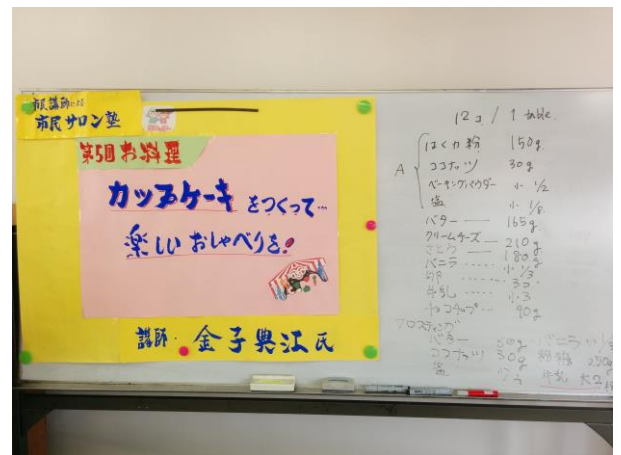 市民講師による
市民サロン塾
第5回お料理
カップケーキをつくって…
楽しいおしゃべりを!
講師・金子興江氏
12コ / 1 table.
A
はくりき粉 150g.
ココナッツ 30g
ベーキングパウダー 小 1/2
塩 小 1/8
バター 165g
クリームチーズ 210g
さとう 180g
バニラ 小 1/3
卵 3コ
牛乳 小3
チョコチップ 90g
フロスティング
バター 50g バニラ
ココナッツ 30g 粉糖 250g
塩 牛乳 大2